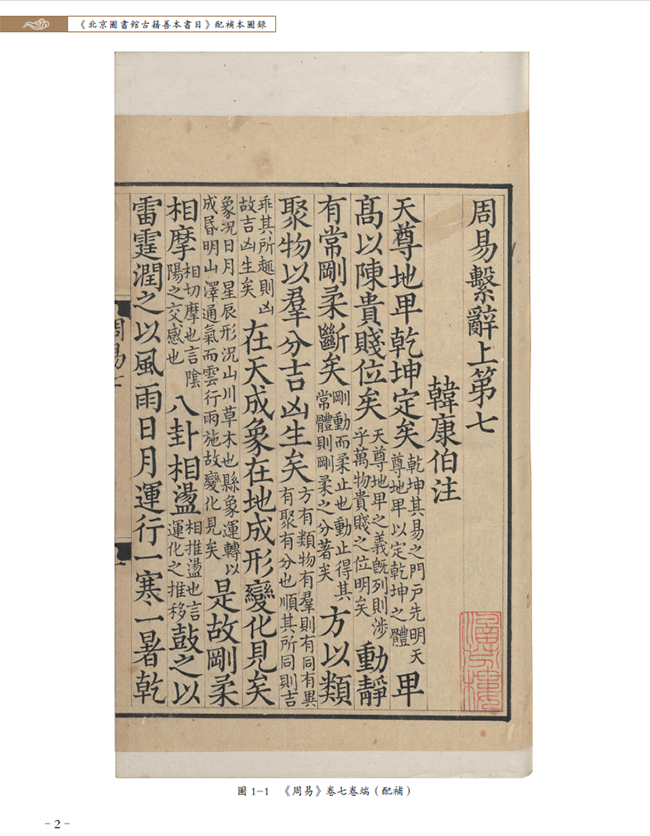 《北京圖書館古籍善本書目》配補本圖錄
周易繫辭上第七
韓康伯注
天尊地卑乾坤定矣乾坤其易之門戶先明天尊地卑以定乾坤之體卑
高以陳貴賤位矣天尊地卑之義既列則涉乎萬物貴賤之位明矣動靜
有常剛柔斷矣剛動而柔止也動止得其常體則剛柔之分著矣方以類
聚物以羣分吉凶生矣方有類物有羣則有同有異有聚有分也順其所同則吉
乖其所趣則凶故吉凶生矣在天成象在地成形變化見矣
象況日月星辰形況山川草木也縣象運轉以成昏明山澤通氣而雲行雨施故變化見矣是故剛柔
相摩相切摩也言陰陽之交感也八卦相盪相推盪也言運化之推移鼓之以
雷霆潤之以風雨日月運行一寒一暑乾
周易七
涵芬樓
圖 1-1 《周易》卷七卷端（配補）
- 2 -